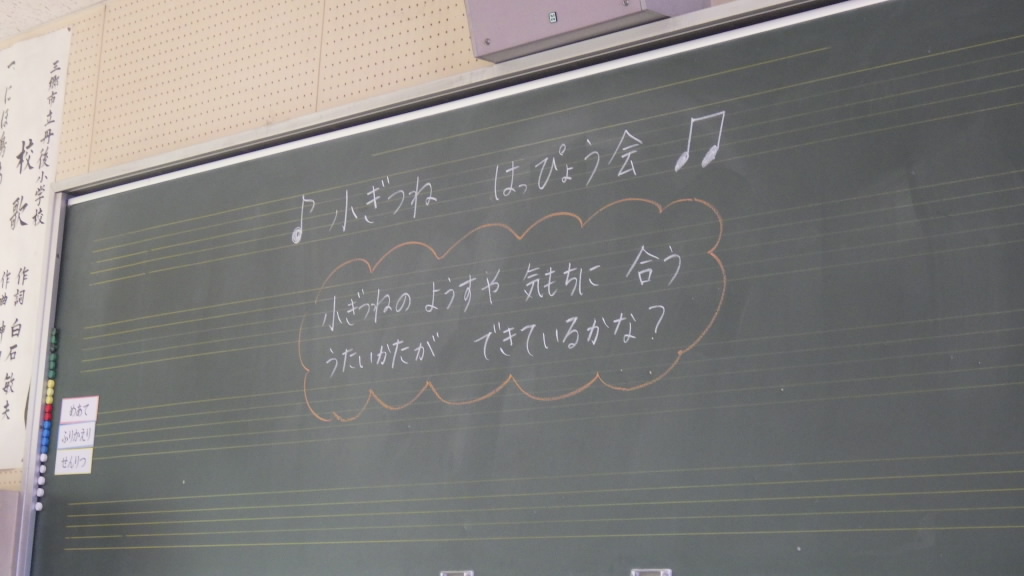 ♪ 小ぎつね はっぴょう会 ♫
小ぎつねの ようすや 気もちに 合う
うたいかたが できているかな？
めあて
ふりかえり
せんりつ
小学校
校歌
作詞 白石敏夫
作曲